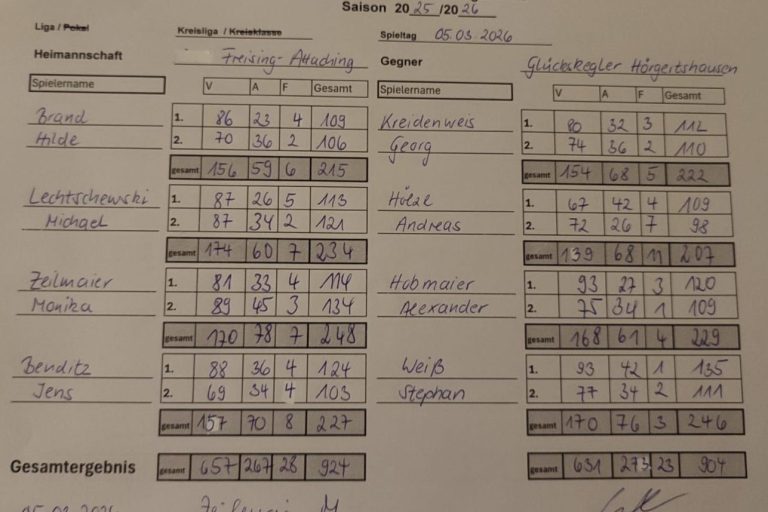 Saison 2025/2026
Liga / Pokal Kreisliga / Kreisklasse Spieltag 05.03.2026
Heimannschaft Freising-Attaching Gegner Glückskegler Hörgertshausen
Spielername V A F Gesamt Spielername V A F Gesamt
Brand 1. 86 23 4 109 Kreidenweis 1. 80 32 3 112
Hilde 2. 70 36 2 106 Georg 2. 74 36 2 110
gesamt 156 59 6 215 gesamt 154 68 5 222
Lechtschewski 1. 87 26 5 113 Hölzl 1. 67 42 4 109
Michael 2. 87 34 2 121 Andreas 2. 72 26 7 98
gesamt 174 60 7 234 gesamt 139 68 11 207
Zeilmaier 1. 81 33 4 114 Hobmaier 1. 93 27 3 120
Monika 2. 89 45 3 134 Alexander 2. 75 34 1 109
gesamt 170 78 7 248 gesamt 168 61 4 229
Benditz 1. 88 36 4 124 Weiß 1. 93 42 1 135
Jens 2. 69 34 4 103 Stephan 2. 77 34 2 111
gesamt 157 70 8 227 gesamt 170 76 3 246
Gesamtergebnis gesamt 657 267 28 924 gesamt 631 273 23 904